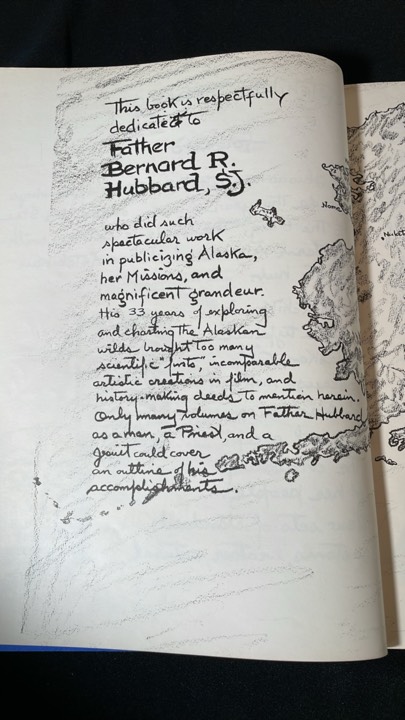 This book is respectfully
dedicated to
Father
Bernard R.
Hubbard, S.J.
who did such
spectacular work
in publicizing Alaska,
her Missions, and
magnificent grandeur.
His 33 years of exploring
and charting the Alaskan
wilds brought too many
scientific "firsts", incomparable
artistic creations in film, and
history-making deeds to mention herein.
Only many volumes on Father Hubbard
as a man, a Priest, and a
Jesuit could cover
an outline of his
accomplishments.
Nome